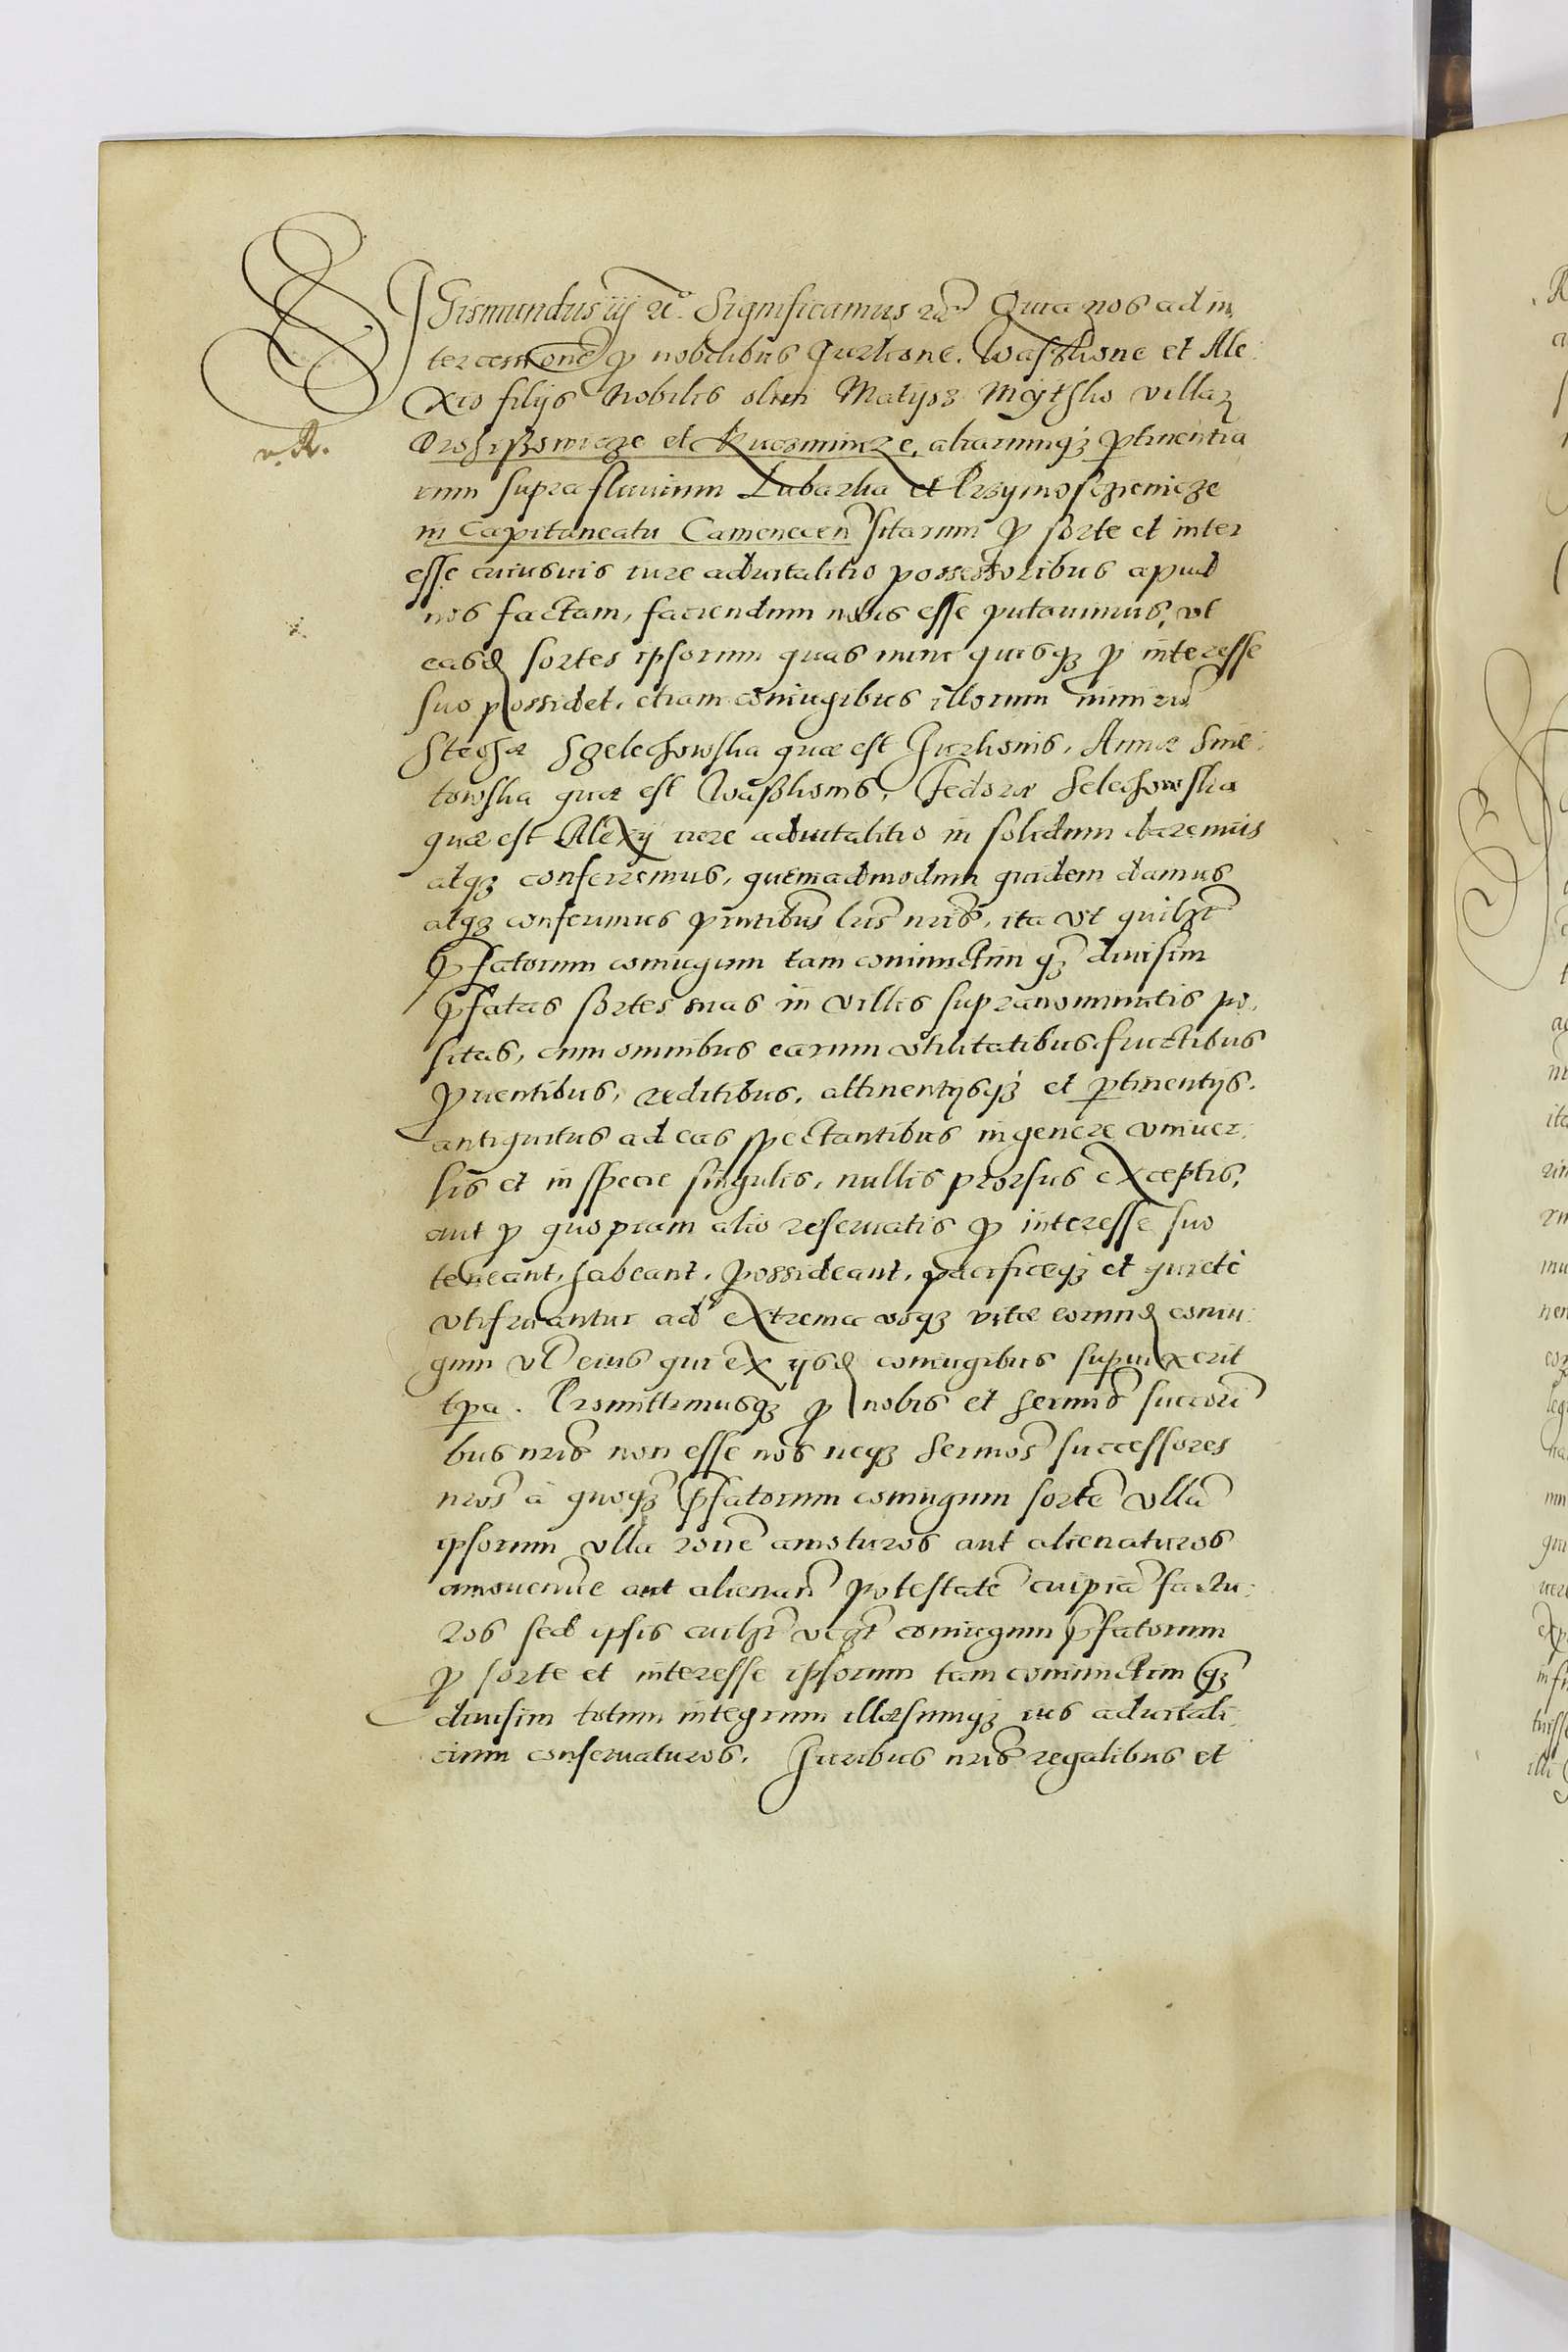 SIgismundus iij etc. Significamus etc. Quia nos ad in
tercessione͂ p nobilibus Jurkone, Waszkone et Ale:
xio filijs Nobilis olim Matijsz Mythko villar
Drohiszowicze et Kuczmincze, aliarumqꝫ ptinentia
rum supra fluvium Lubarka et Przymosczenicze
in Capitaneatu Camenecen͂ sitarum p sorte et inter
esse cuiusvis iure advitalitio possessoribus apud
nos factam, faciendum nobis esse putavimus, vt
easd sortes ipsorum quas nunc quisqꝫ p interesse
suo possidet, etiam coniugibus illorum nimiru͂
Stechæ Szelechowska quæ est Jurkonis, Annæ Smie:
towska quæ est Waszkonis, Fedoræ Selechowska
quæ est Alexij iure advitalitio in solidum daremus
atqꝫ conferremus, quemadmodum quidem damus
atqꝫ conferimus pntibus lris nris, ita vt quilbt
pfatorum coniugum tam coniunctim qꝫ divisim
pfatas sortes suas in villis supranominatis po:
sitas, cum omnibus earum vtilitatibus, fructibus
pventibus, reditibus, attinentijsqꝫ et ptinentijs.
antiquitus ad eas spectantibus in genere vniver:
sis et in specie singulis, nullis prorsus exceptis,
aut p quopiam alio reservatis p interesse suo
teneant, habeant, possideant, pacificeqꝫ et quiete
vtifruantur ad extrema vsqꝫ vitæ eorund coniu:
gum vl eius qui ex ijsd coniugibus supvixerit
tpa. Promittimusqꝫ p nobis et Sermis succori
bus nris non esse nos neqꝫ Sermos successores
nros à quoqꝫ pfatorum coniugum sorte͂ vlla͂
ipsorum vlla rone͂ amoturos aut alienaturos
amovenve aut alienan͂ potestate͂ cuipia͂ factu:
ros sed ipsis cuilbt vtqt coniugum pfatorum
p sorte et interesse ipsorum tam coniunctim qꝫ
divisim totum integrum illæsumqꝫ ius advitali
cium conservaturos. Juribus nris regalibus et